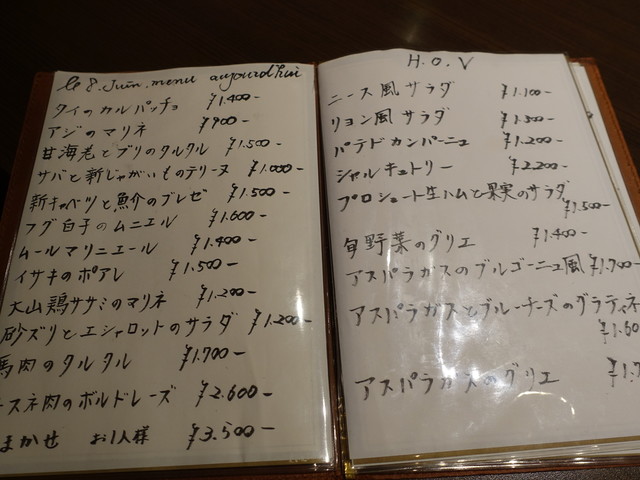 le 8. Juin. menu aujourd'hui
タイのカルパッチョ ¥1.400-
アジのマリネ ¥900-
甘海老とブリのタルタル ¥1.500-
サバと新じゃがいものテリーヌ ¥1.000-
新キャベツと魚介のブレゼ ¥1.500-
フグ白子のムニエル ¥1.600-
ムールマリニエール ¥1.400-
イサキのポアレ ¥1.500-
大山鶏ササミのマリネ ¥1.200-
砂ズリとエシャロットのサラダ ¥1.200-
馬肉のタルタル ¥1.700-
スネ肉のボルドレーズ ¥2.600-
まかせ お1人様 ¥3.500-
H.O.V
ニース風サラダ ¥1.100-
リヨン風サラダ ¥1.500-
パテドカンパーニュ ¥1.200-
シャルキュトリー ¥2.200-
プロシュート生ハムと果実のサラダ
¥1.500-
旬野菜のグリエ ¥1.400-
アスパラガスのブルゴーニュ風 ¥1.700-
アスパラガスとブルーチーズのグラティネ
¥1.60
アスパラガスのグリエ ¥1.7